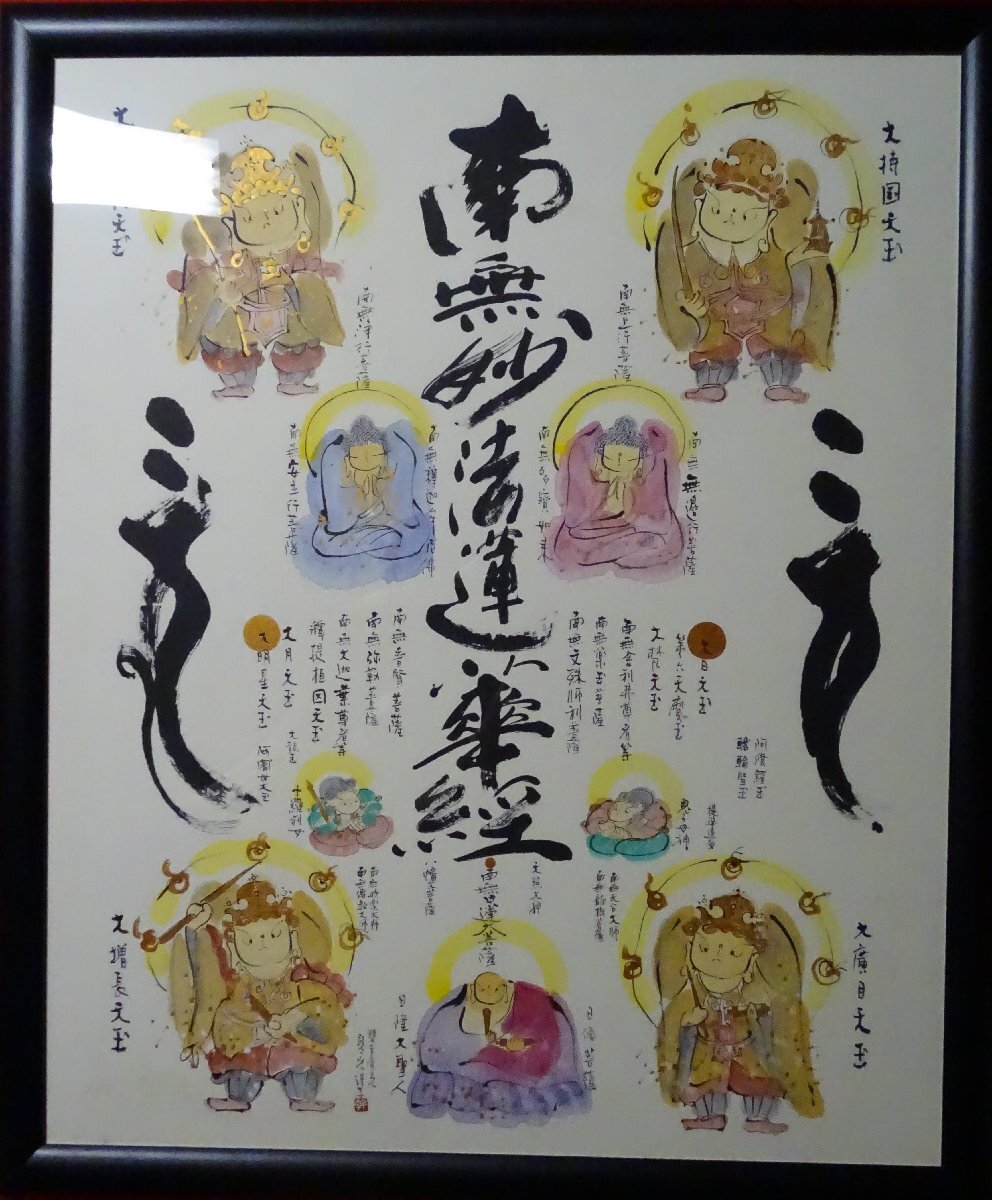 南無妙法蓮華經
大持國天玉
南無上行菩薩
南無無邊行菩薩
南無多寳如来
大日天玉
第六天魔玉
大梵天玉
南無舎利弗尊者等
南無薬王菩薩
南無文殊師利菩薩
南無普賢菩薩
南無弥勒菩薩
南無大迦葉尊者等
釋提桓因天玉
大月天玉
大明星天玉
南無浄行菩薩
南無安立行菩薩
阿修羅王
轉輪聖王
鬼子母神
大龍王
阿闍世大王
十羅刹女
南無天台大師
八幡大菩薩
南無日蓮大菩薩
日隆大聖人
大廣目天玉
大増長天玉